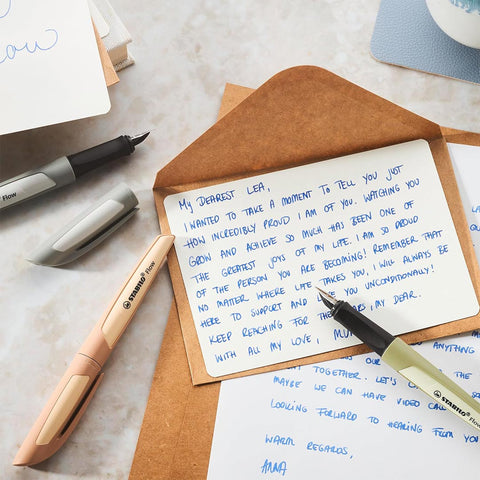 Flow
Flow
STABILO® Flow
MY DEAREST LEA,
I WANTED TO TAKE A MOMENT TO TELL YOU JUST
HOW INCREDIBLY PROUD I AM OF YOU. WATCHING YOU
GROW AND ACHIEVE SO MUCH HAS BEEN ONE OF
THE GREATEST JOYS OF MY LIFE. I AM SO PROUD
OF THE PERSON YOU ARE BECOMING! REMEMBER THAT
NO MATTER WHERE LIFE TAKES YOU, I WILL ALWAYS BE
HERE TO SUPPORT AND YOU UNCONDITIONALLY!
KEEP REACHING FOR THE , MY DEAR.
WITH ALL MY LOVE,
STABILO® Flow
ANYTHING
TOGETHER. THE
MAYBE WE CAN HAVE VIDEO
LOOKING FORWARD TO HEARING FROM YOU
WARM REGARDS,
ANNA